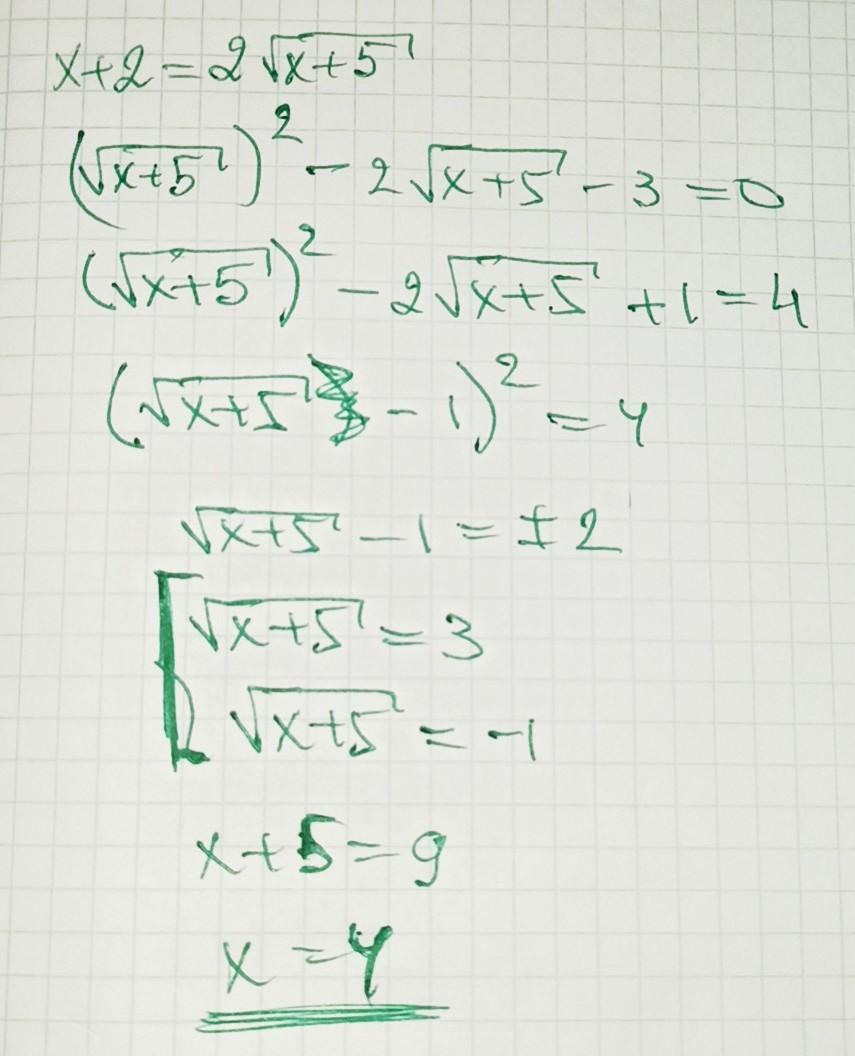 x+2=2√(x+5)
(√(x+5))² - 2√(x+5) - 3 = 0
(√(x+5))² - 2√(x+5) + 1 = 4
(√(x+5) - 1)² = 4
√(x+5) - 1 = ±2
[√(x+5) = 3
√(x+5) = -1
x+5=9
x=4